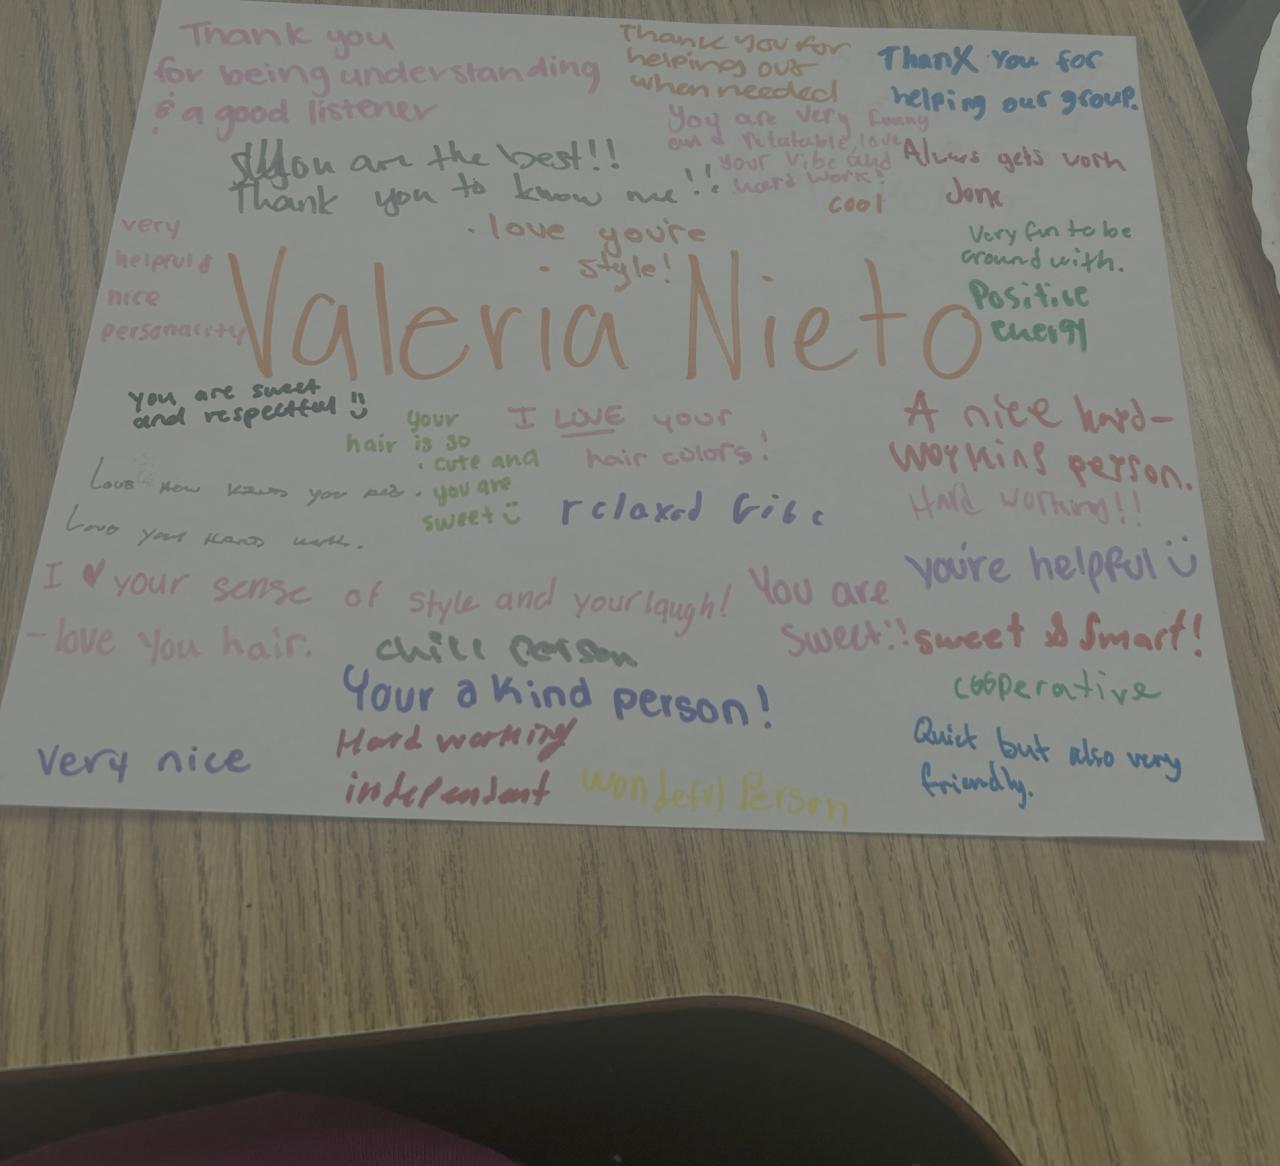 Thank you
for being understanding
& a good listener
Thank you for
helping out
when needed
Thanx you for
helping our group.
You are the best!!
Thank you to know me!!
You are very funny
and relatable, love
your vibe and
hard work!
Always gets worh
done
cool
very
helpful &
nice
personality
. love you're
. style!
Very fun to be
around with.
Positive
energy
Valeria Nieto
you are sweet
and respectful
your
hair is so
. cute and
you are
sweet
I LOVE your
hair colors!
A nice hard-
working person.
Hard working!!
Love How
you
.
Love your
work.
relaxed vibe
you're helpful
I ♥ your sense of style and your laugh!
You are
sweet!!
sweet & smart!
-love you hair.
chill person
cooperative
Your a kind person!
Quick but also very
friendly.
Very nice
Hard working
independent
wondeful Person